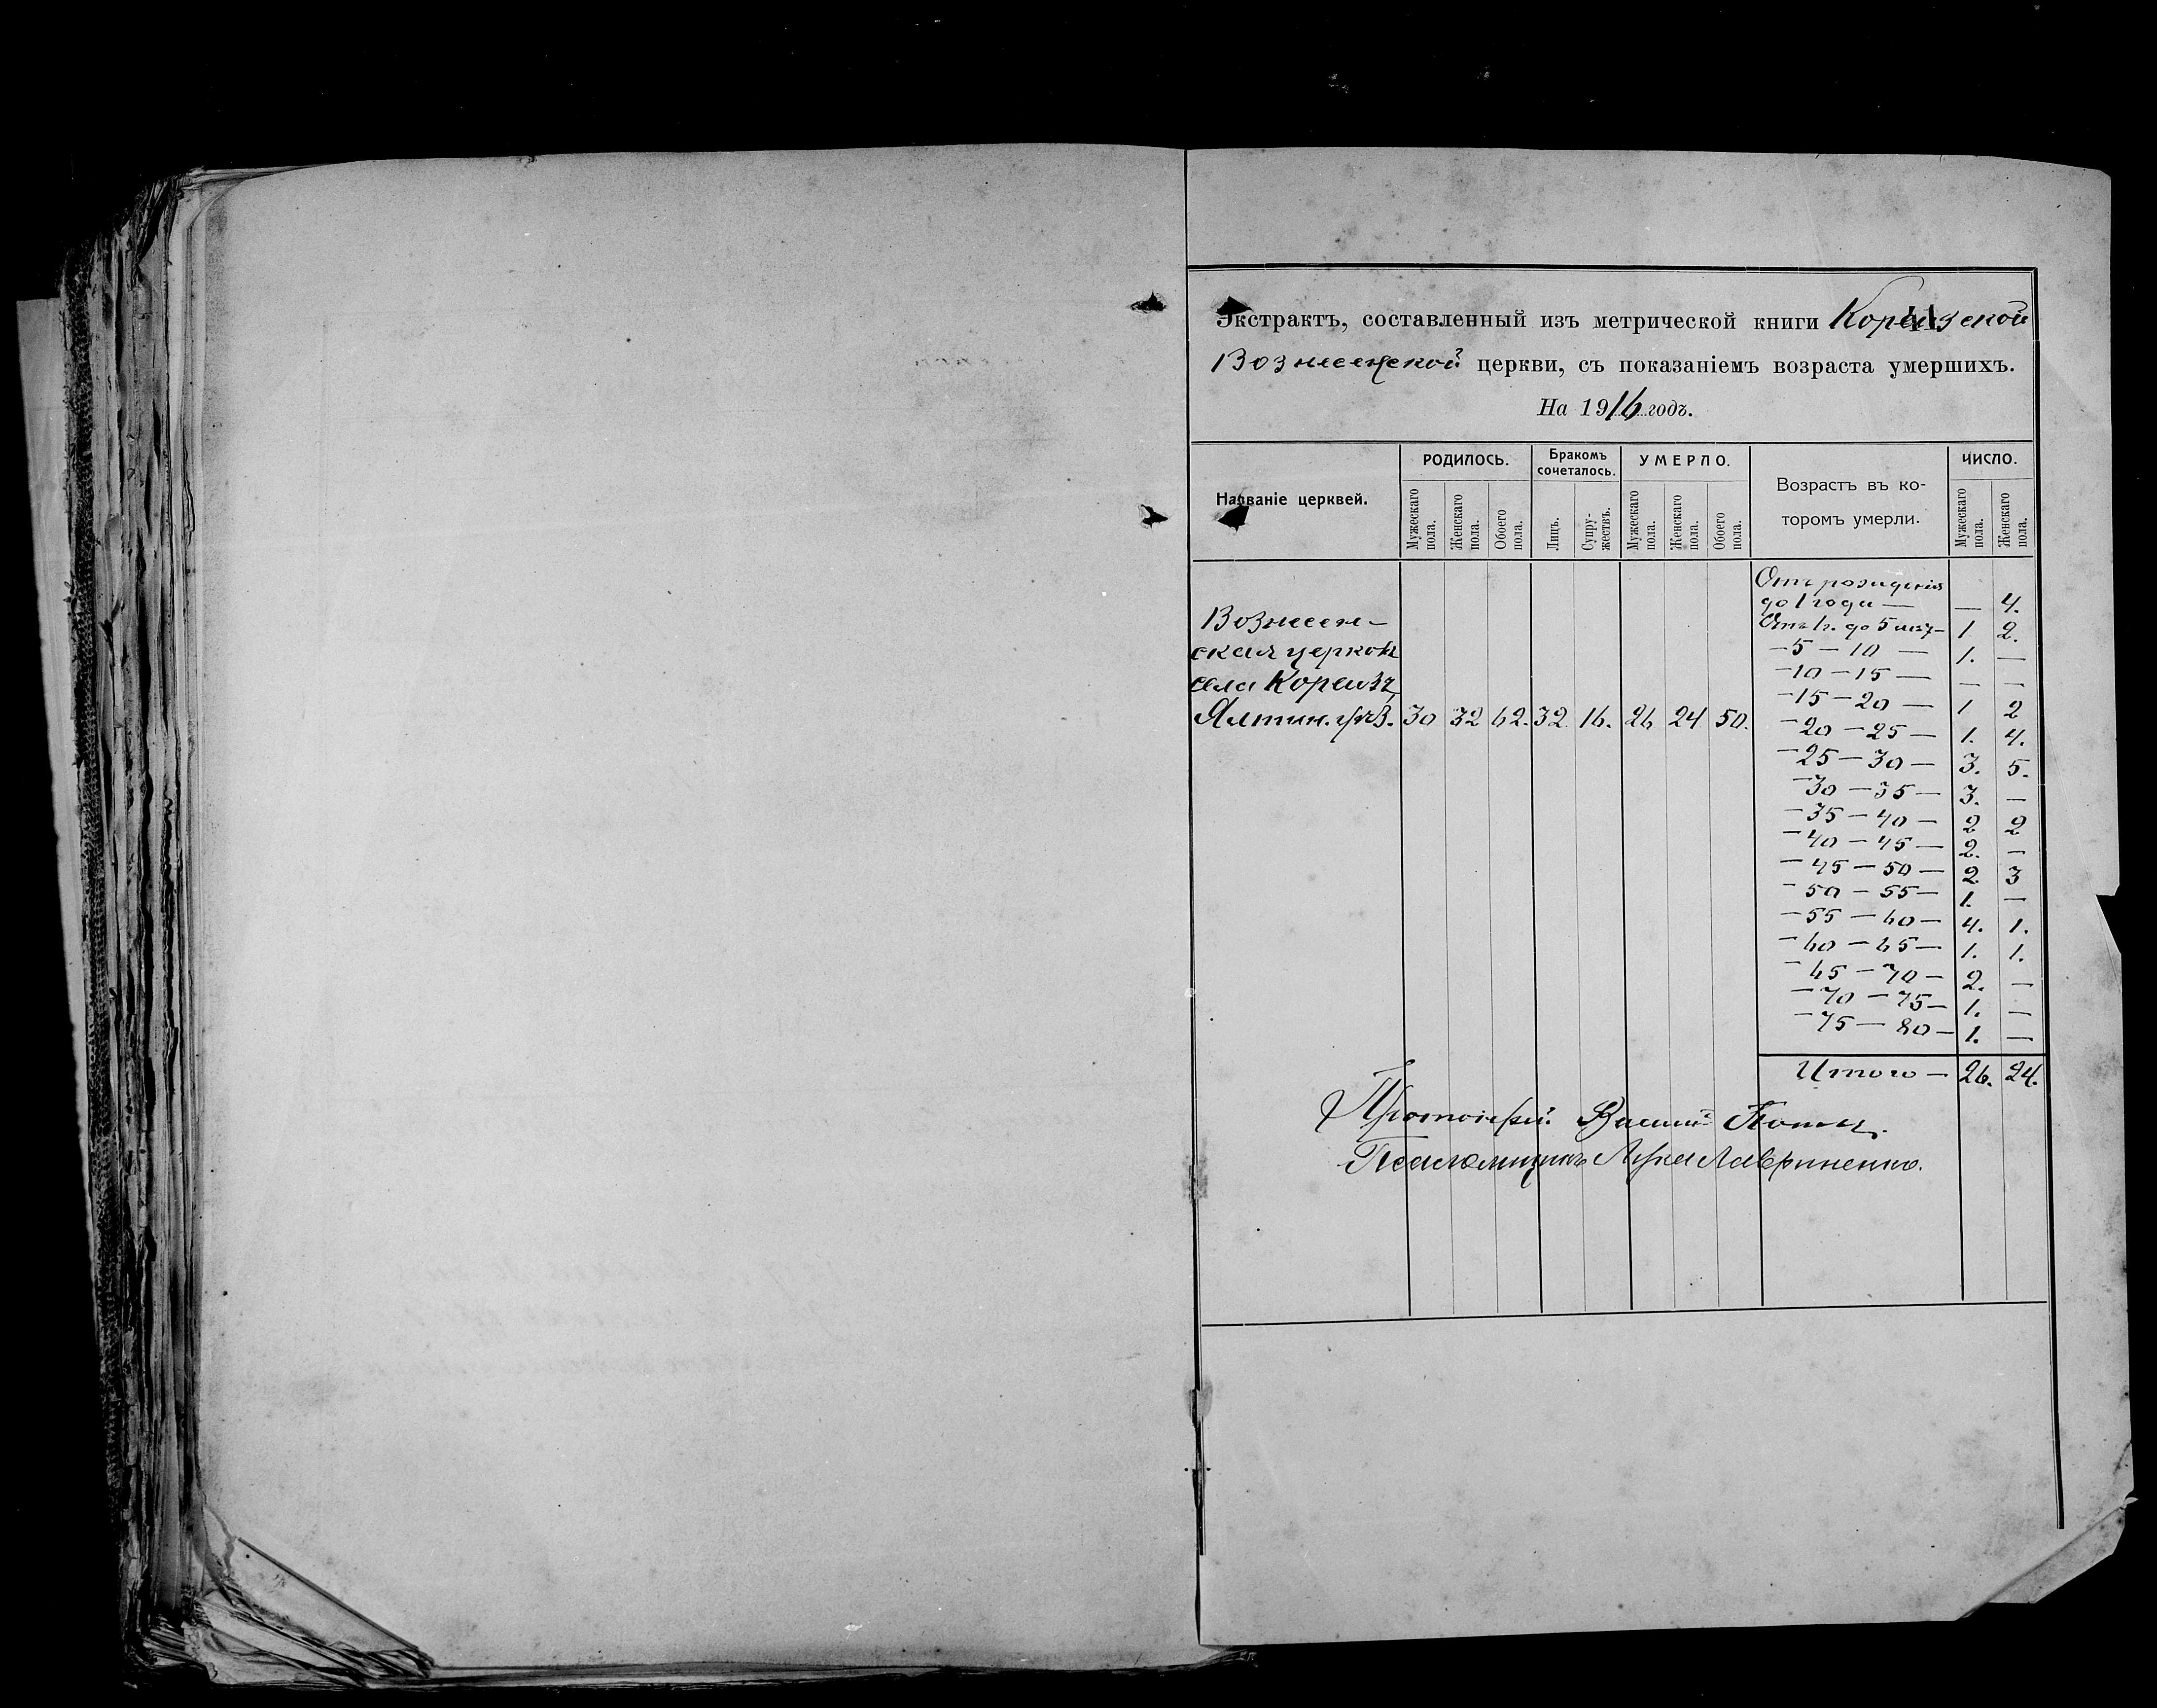 Экстрактъ, составленный изъ метрической книги Кореизской
Вознесенской церкви, съ показаніемъ возраста умершихъ.
На 1916 годъ.
Названіе церквей.
РОДИЛОСЬ.
Мужескаго пола.
Женскаго пола.
Обоего пола.
Бракомъ сочеталось.
Лицъ.
Супружествъ.
УМЕРЛО.
Мужескаго пола.
Женскаго пола.
Обоего пола.
Возрастъ въ ко-
торомъ умерли.
ЧИСЛО.
Мужескаго пола.
Женскаго пола.
Вознесен-
ская церковь
села Кореизъ,
Ялтин. уѣз. 30 32 62. 32 16. 26 24 50.
Отъ рожденія
до 1 года — — 4.
Отъ 1 г. до 5 лѣт— 1 2.
— 5 — 10 — 1. —
— 10 — 15 — — —
— 15 — 20 — 1 2
— 20 — 25 — 1. 4.
— 25 — 30 — 3. 5.
— 30 — 35 — 3. —
— 35 — 40 — 2 2
— 40 — 45 — 2. —
— 45 — 50 — 2. 3
— 50 — 55 — 1. —
— 55 — 60 — 4. 1.
— 60 — 65 — 1. 1.
— 65 — 70 — 2. —
— 70 — 75 — 1. —
— 75 — 80 — 1. —
Итого — 26. 24.
Протоіерей Василій
Псаломщикъ Лука Лавриненко.